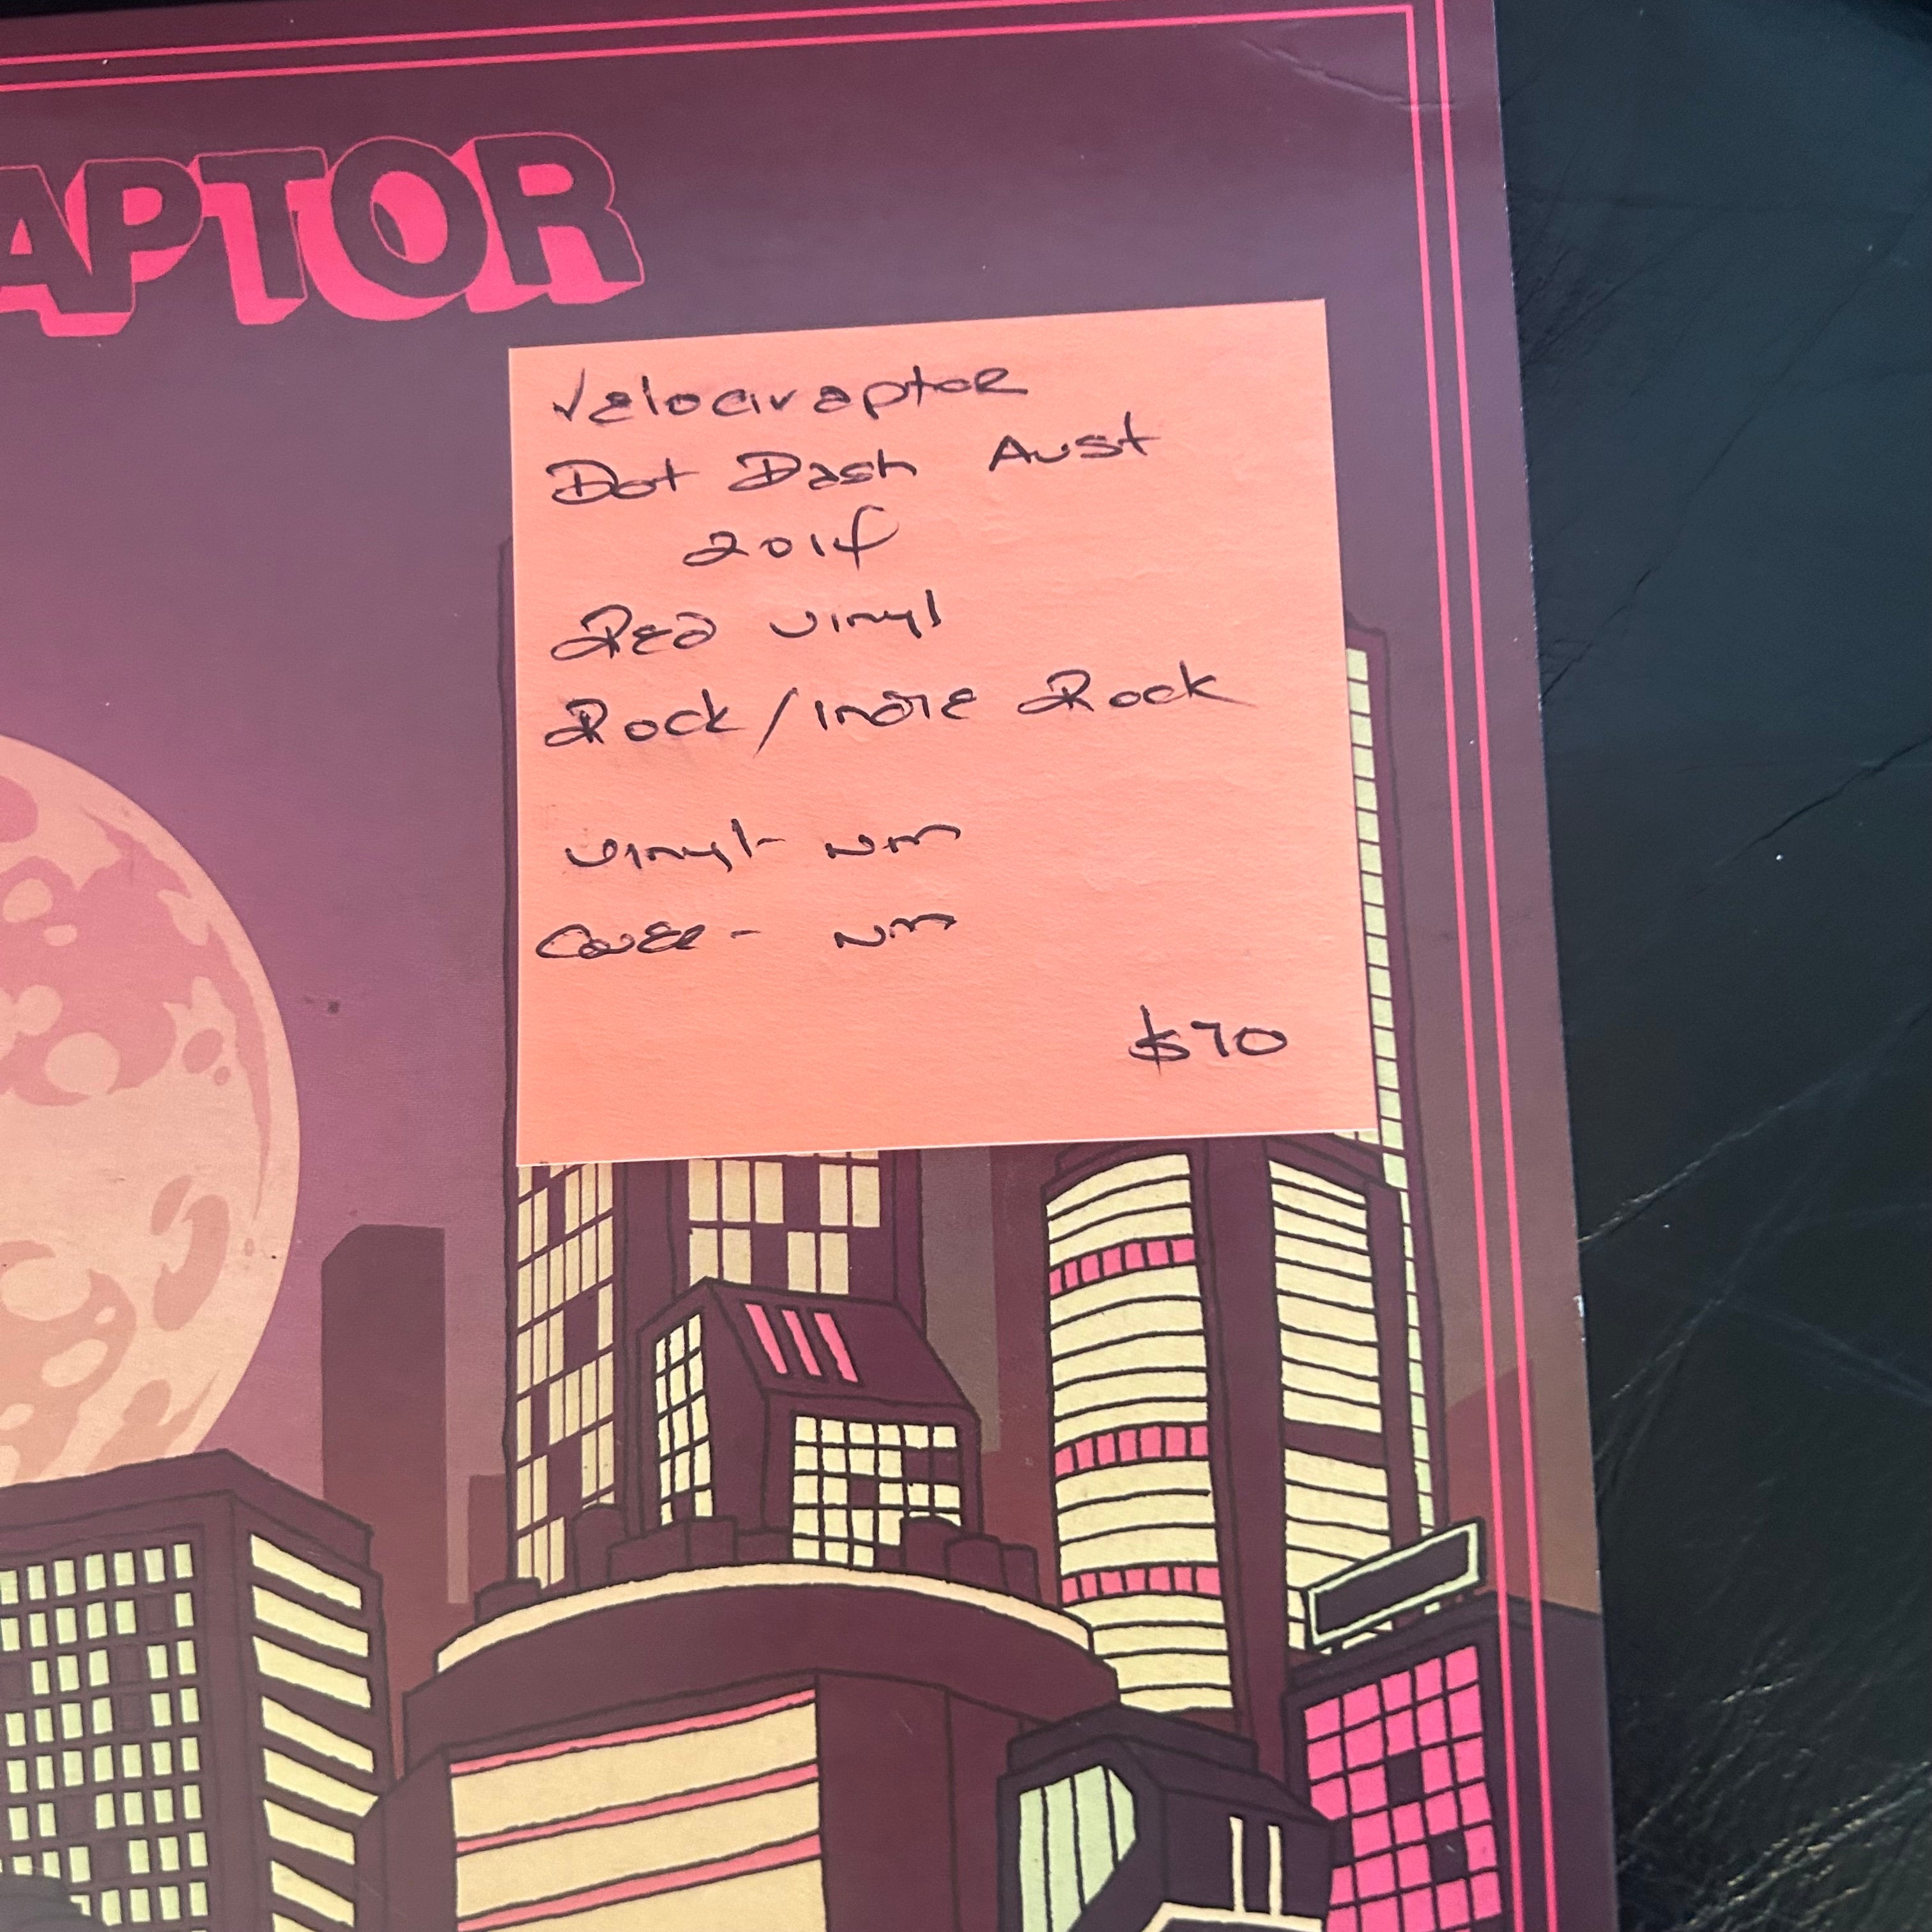 APTOR
Velociraptor
Dot Dash Aust
2014
Red vinyl
Rock/Indie Rock
Vinyl- NM
Cover- NM
$70